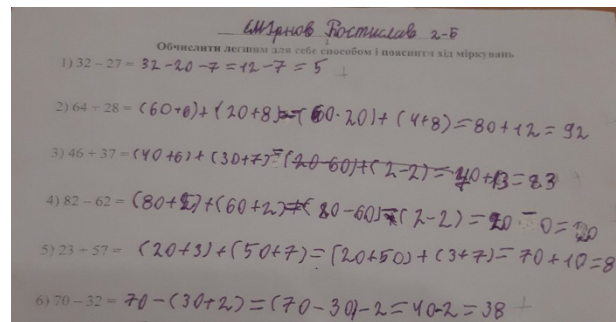 Смірнов Ростислав 2-Б
Обчислити легшим для себе способом і пояснити хід міркувань
1) 32 – 27 = 32-20-7=12-7=5 +
2) 64 + 28 = (60+6)+(20+8)=(60-20)+(4+8)=80+12=92
3) 46 + 37 = (40+6)+(30+7)=(20-60)+(2-2)=70+13=83
4) 82 – 62 = (80+2)+(60+2)=(80-60)-(2-2)=20-0=20
5) 23 + 57 = (20+3)+(50+7)=(20+50)+(3+7)=70+10=8
6) 70 – 32 = 70-(30+2)=(70-30)-2=40-2=38 +